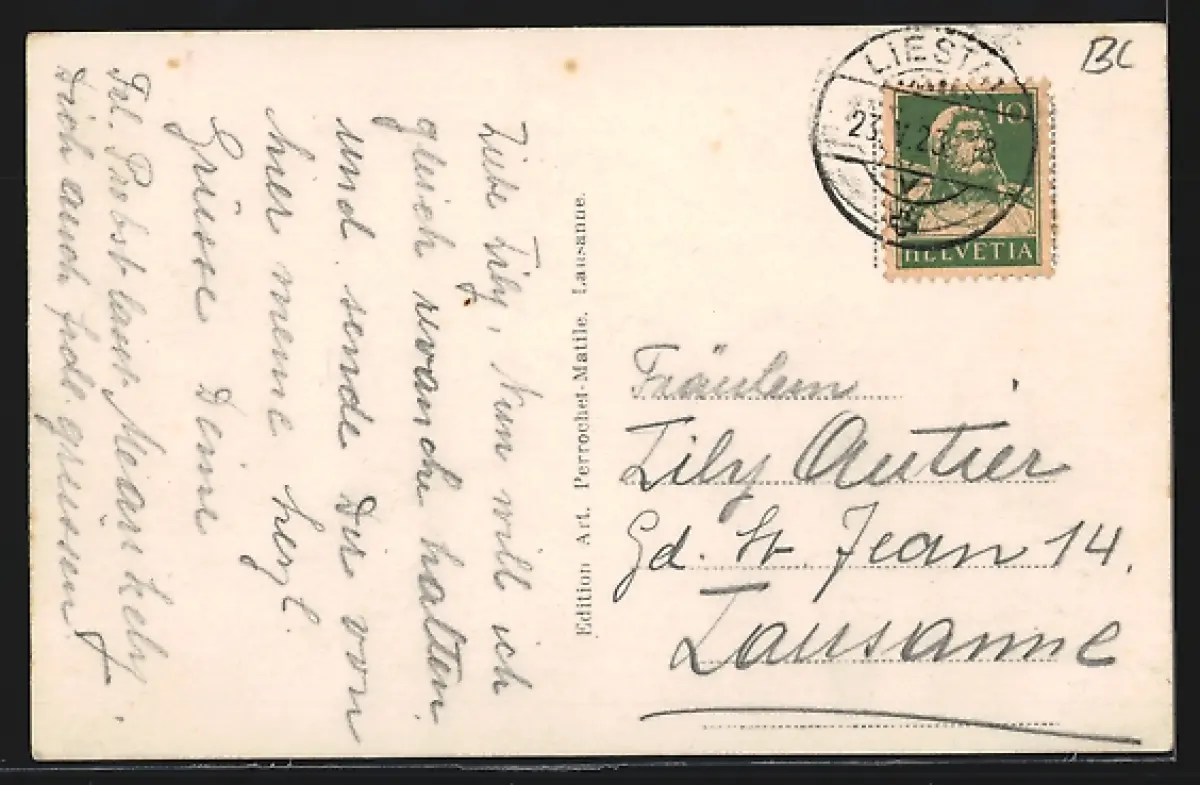 BL
LIESTAL
10
HELVETIA
Liebe Lily, Nun will ich
gleich revanche halten
und sende Dir von
hier meine herzl.
Grüsse Deine
Frl. Probst lässt
Dich auch grüssen
Edition Art. Perrochet-Matile. Lausanne.
Fräulein
Lily Autier
Gd. St. Jean 14.
Lausanne